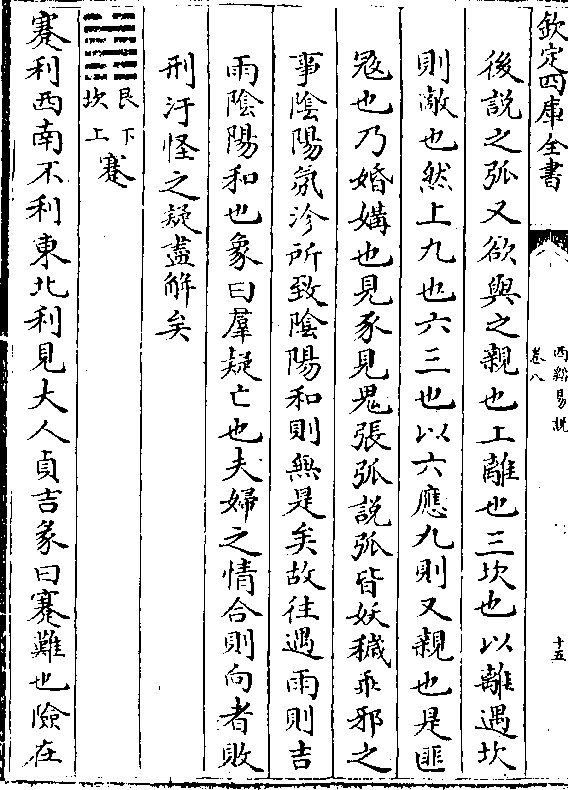 欽定四庫全書
西谿易說
卷八
十五
後說之弧又欲與之親也上離也三坎也以離遇坎
則敵也然上九也六三也以六應九則又親也是匪
冦也乃婚媾也見豕見鬼張弧說弧皆妖穢乖邪之
事陰陽氛沴所致陰陽和則無是矣故往遇雨則吉
雨陰陽和也象曰羣疑亡也夫婦之情合則向者敗
刑汙怪之疑盡解矣
䷦艮下坎上蹇
蹇利西南不利東北利見大人貞吉彖曰蹇難也險在